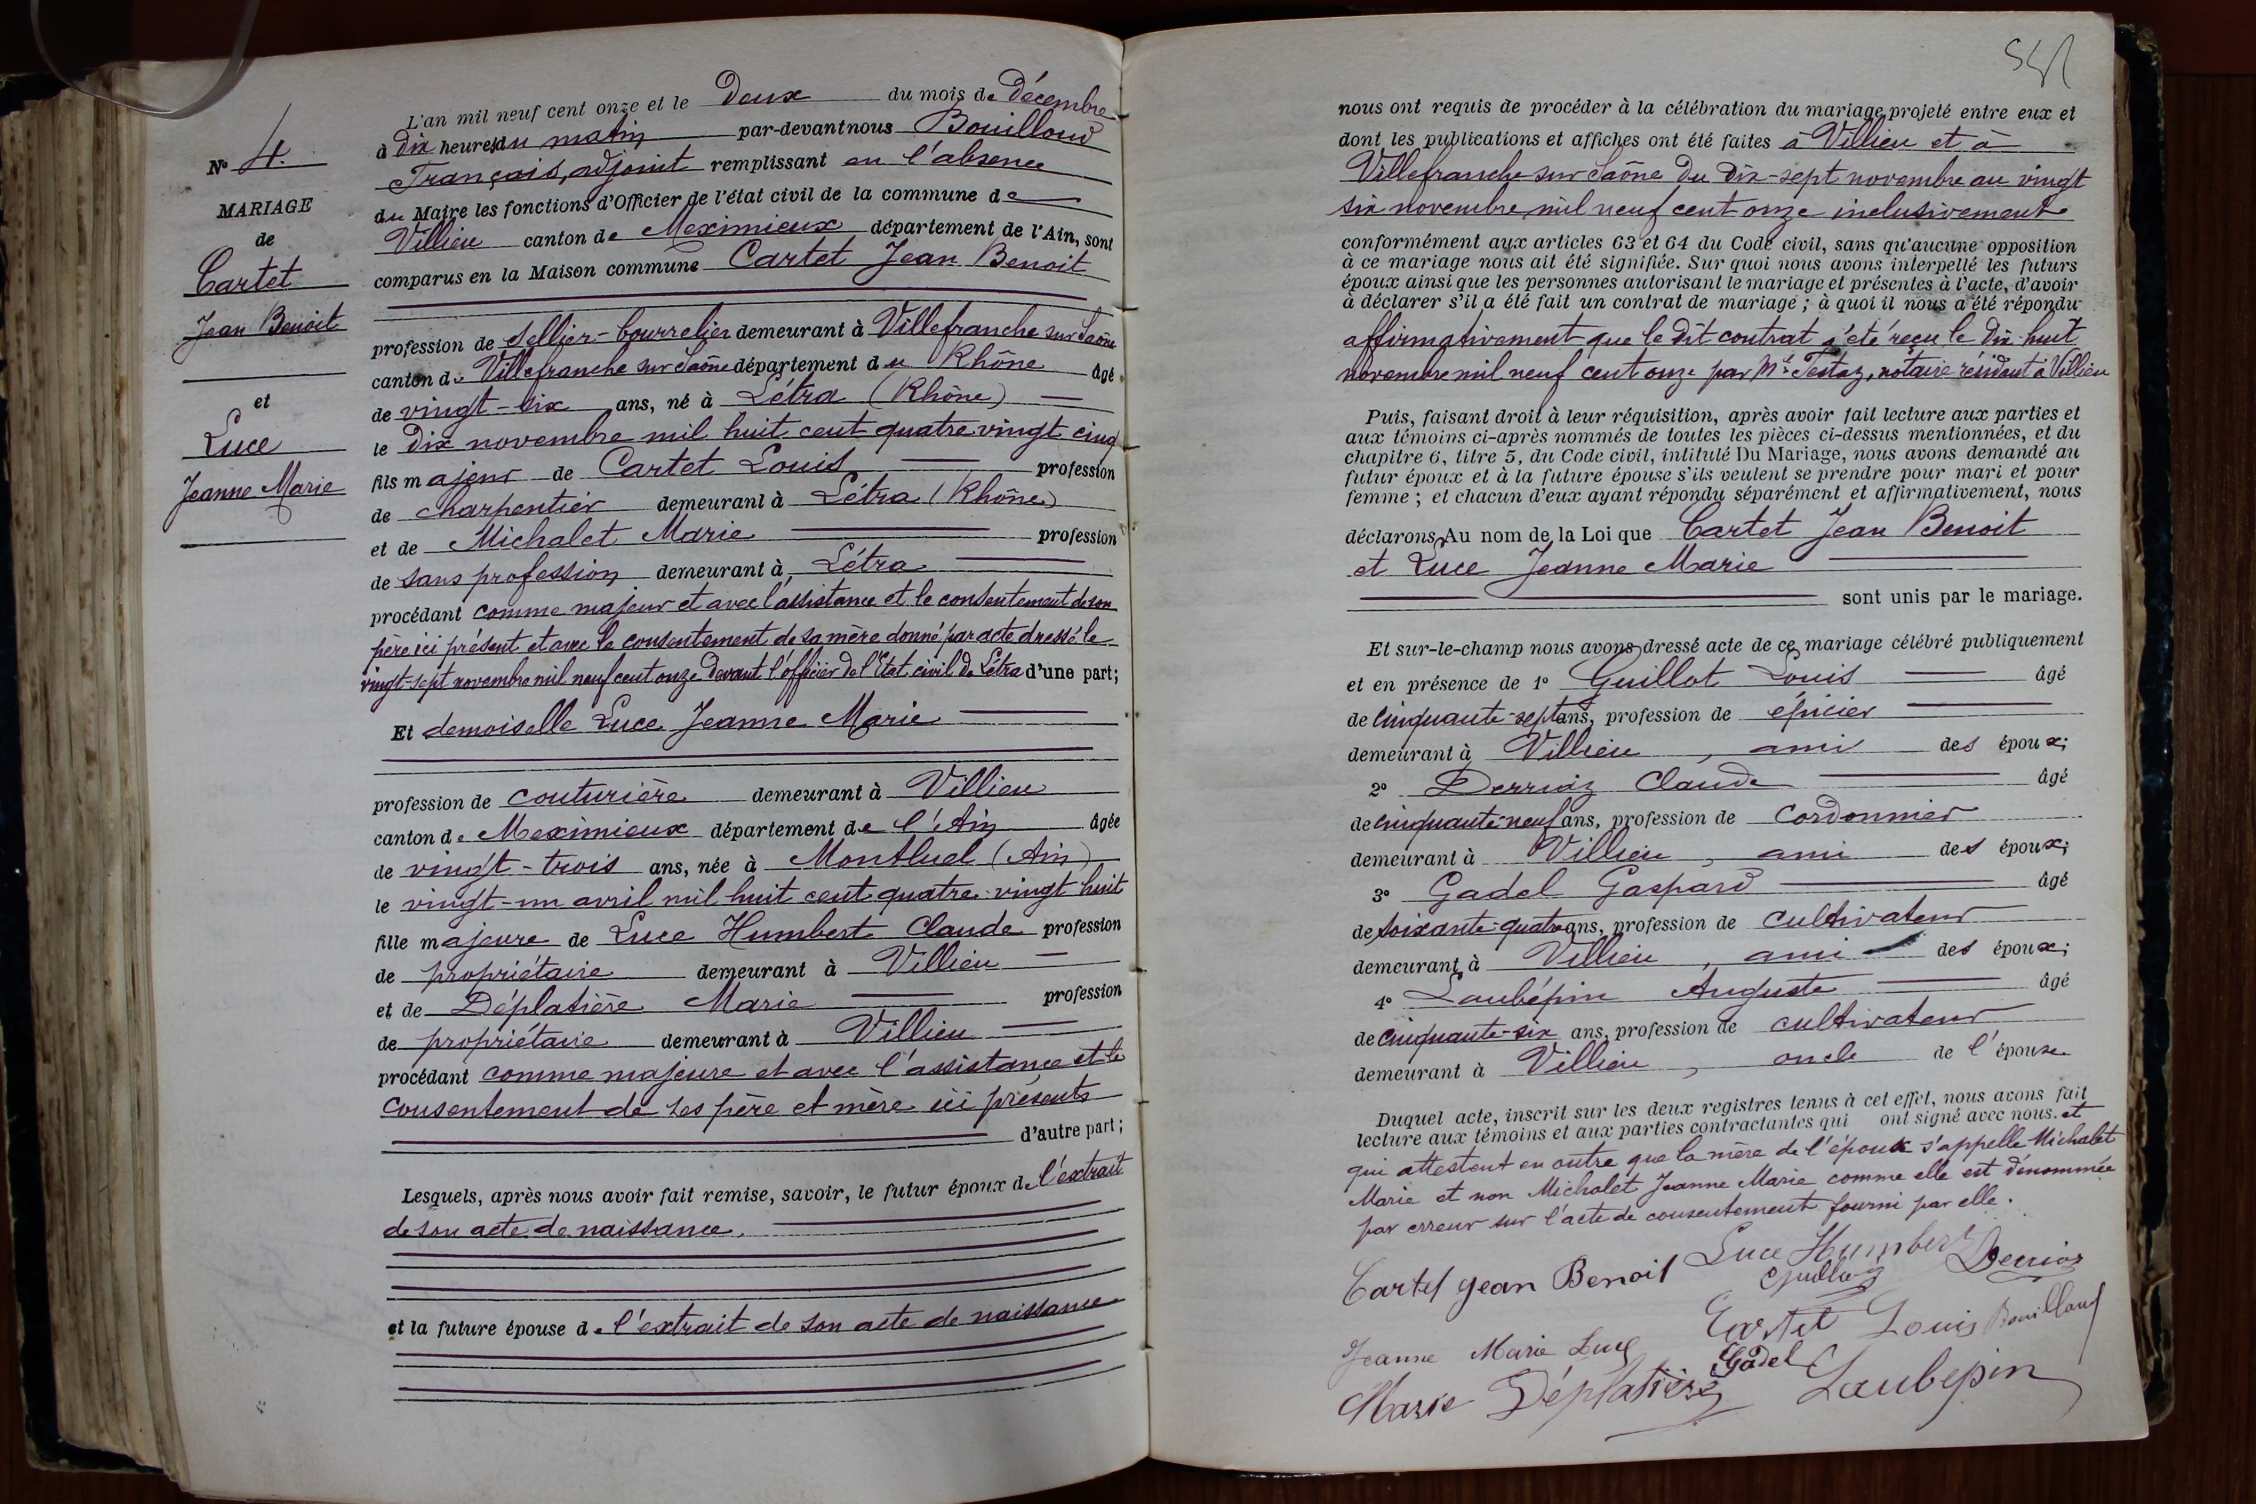 N° 4.
MARIAGE
de
Cartet
Jean Benoit
et
Luce
Jeanne Marie
L'an mil neuf cent onze et le Deux du mois de Décembre
à Dix heures du matin par-devant nous Bouilloud
Français, adjoint remplissant en l'absence
du Maire les fonctions d'Officier de l'état civil de la commune de
Villieu canton de Meximieux département de l'Ain, sont
comparus en la Maison commune Cartet Jean Benoit
profession de sellier-bourrelier demeurant à Villefranche sur Saône
canton de Villefranche sur Saône département du Rhône âgé
de vingt-six ans, né à Létra (Rhône)
le dix novembre mil huit cent quatre vingt cinq
fils majeur de Cartet Louis profession
de charpentier demeurant à Létra (Rhône)
et de Michalet Marie profession
de sans profession demeurant à Létra
procédant comme majeur et avec l'assistance et le consentement de son
père ici présent et avec le consentement de sa mère donné par acte dressé le
vingt-sept novembre mil neuf cent onze devant l'officier de l'Etat civil de Létra d'une part;
Et demoiselle Luce Jeanne Marie
profession de couturière demeurant à Villieu
canton de Meximieux département de l'Ain âgée
de vingt-trois ans, née à Montluel (Ain)
le vingt-un avril mil huit cent quatre-vingt huit
fille majeure de Luce Humbert Claude profession
de propriétaire demeurant à Villieu
et de Déplatière Marie profession
de propriétaire demeurant à Villieu
procédant comme majeure et avec l'assistance et le
consentement de ses père et mère ici présents
d'autre part;
Lesquels, après nous avoir fait remise, savoir, le futur époux de l'extrait
de son acte de naissance.
et la future épouse de l'extrait de son acte de naissance
nous ont requis de procéder à la célébration du mariage projeté entre eux et
dont les publications et affiches ont été faites à Villieu et à
Villefranche sur Saône du dix-sept novembre au vingt
six novembre mil neuf cent onze inclusivement
conformément aux articles 63 et 64 du Code civil, sans qu'aucune opposition
à ce mariage nous ait été signifiée. Sur quoi nous avons interpellé les futurs
époux ainsi que les personnes autorisant le mariage et présentes à l'acte, d'avoir
à déclarer s'il a été fait un contrat de mariage; à quoi il nous a été répondu
affirmativement que le dit contrat a été reçu le dix-huit
novembre mil neuf cent onze par Me Testaz, notaire résidant à Villieu
Puis, faisant droit à leur réquisition, après avoir fait lecture aux parties et
aux témoins ci-après nommés de toutes les pièces ci-dessus mentionnées, et du
chapitre 6, titre 5, du Code civil, intitulé Du Mariage, nous avons demandé au
futur époux et à la future épouse s'ils veulent se prendre pour mari et pour
femme; et chacun d'eux ayant répondu séparément et affirmativement, nous
déclarons Au nom de la Loi que Cartet Jean Benoit
et Luce Jeanne Marie
sont unis par le mariage.
Et sur-le-champ nous avons dressé acte de ce mariage célébré publiquement
et en présence de 1° Guillot Louis âgé
de cinquante-sept ans, profession de épicier
demeurant à Villieu, ami des époux;
2° Derrioz Claude âgé
de cinquante-neuf ans, profession de cordonnier
demeurant à Villieu, ami des époux;
3° Gadel Gaspard âgé
de soixante-quatre ans, profession de cultivateur
demeurant à Villieu, ami des époux;
4° Laubépin Auguste âgé
de cinquante-six ans, profession de cultivateur
demeurant à Villieu, oncle de l'épouse
Duquel acte, inscrit sur les deux registres tenus à cet effet, nous avons fait
lecture aux témoins et aux parties contractantes qui ont signé avec nous. et
qui attestent en outre que la mère de l'époux s'appelle Michalet
Marie et non Michalet Jeanne Marie comme elle est dénommée
par erreur sur l'acte de consentement fourni par elle.
Cartet Jean Benoit Luce Humbert Derrioz
Guillot
Cartet Louis Bouilloud
Jeanne Marie Luce Gadel
Marie Déplatière Laubépin